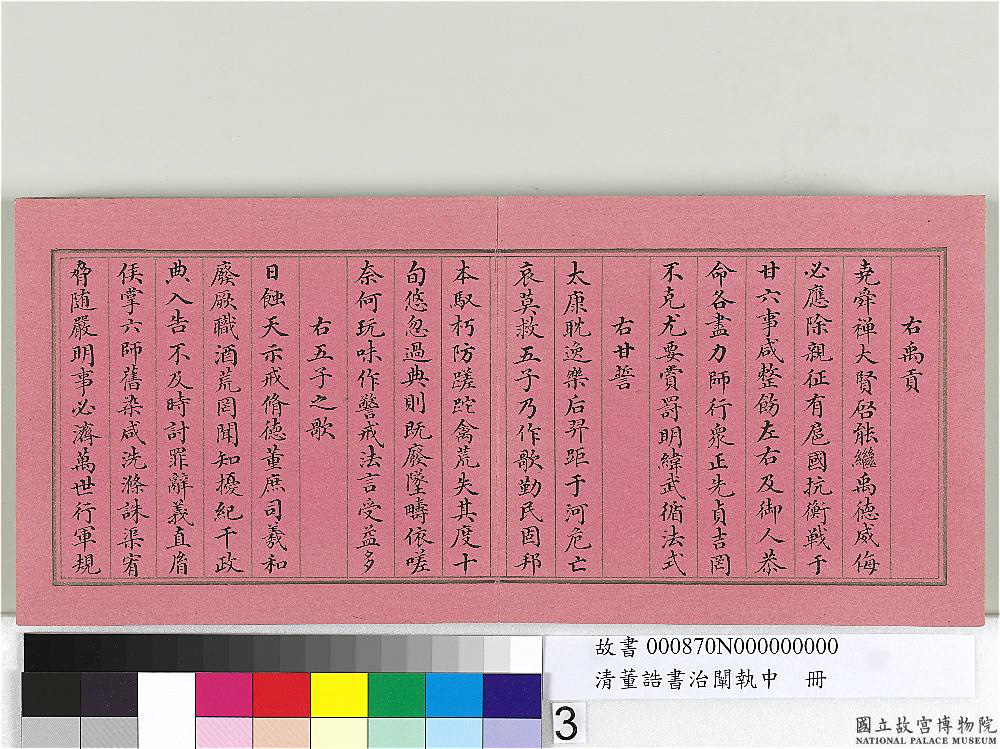 右禹貢
堯舜禪大賢啓能繼禹德威侮
必應除親征有扈國抗衡戰于
甘六事咸整飭左右及御人恭
命各盡力師行衆正先貞吉罔
不克尤要賞罰明緯武循法式
右甘誓
太康耽逸樂后羿距于河危亡
哀莫救五子乃作歌勤民固邦
本馭朽防蹉跎禽荒失其度十
旬悠忽過典則既廢墜疇依嗟
奈何玩味作警戒法言受益多
右五子之歌
日蝕天示戒脩德董庶司羲和
廢厥職酒荒罔聞知擾紀干政
典入告不及時討罪辭義直胤
侯掌六師舊染咸洗滌誅渠宥
脅隨嚴明事必濟萬世行軍規
故書 000870N000000000
清董誥書治闡執中 冊
3
國立故宮博物院
NATIONAL PALACE MUSEUM